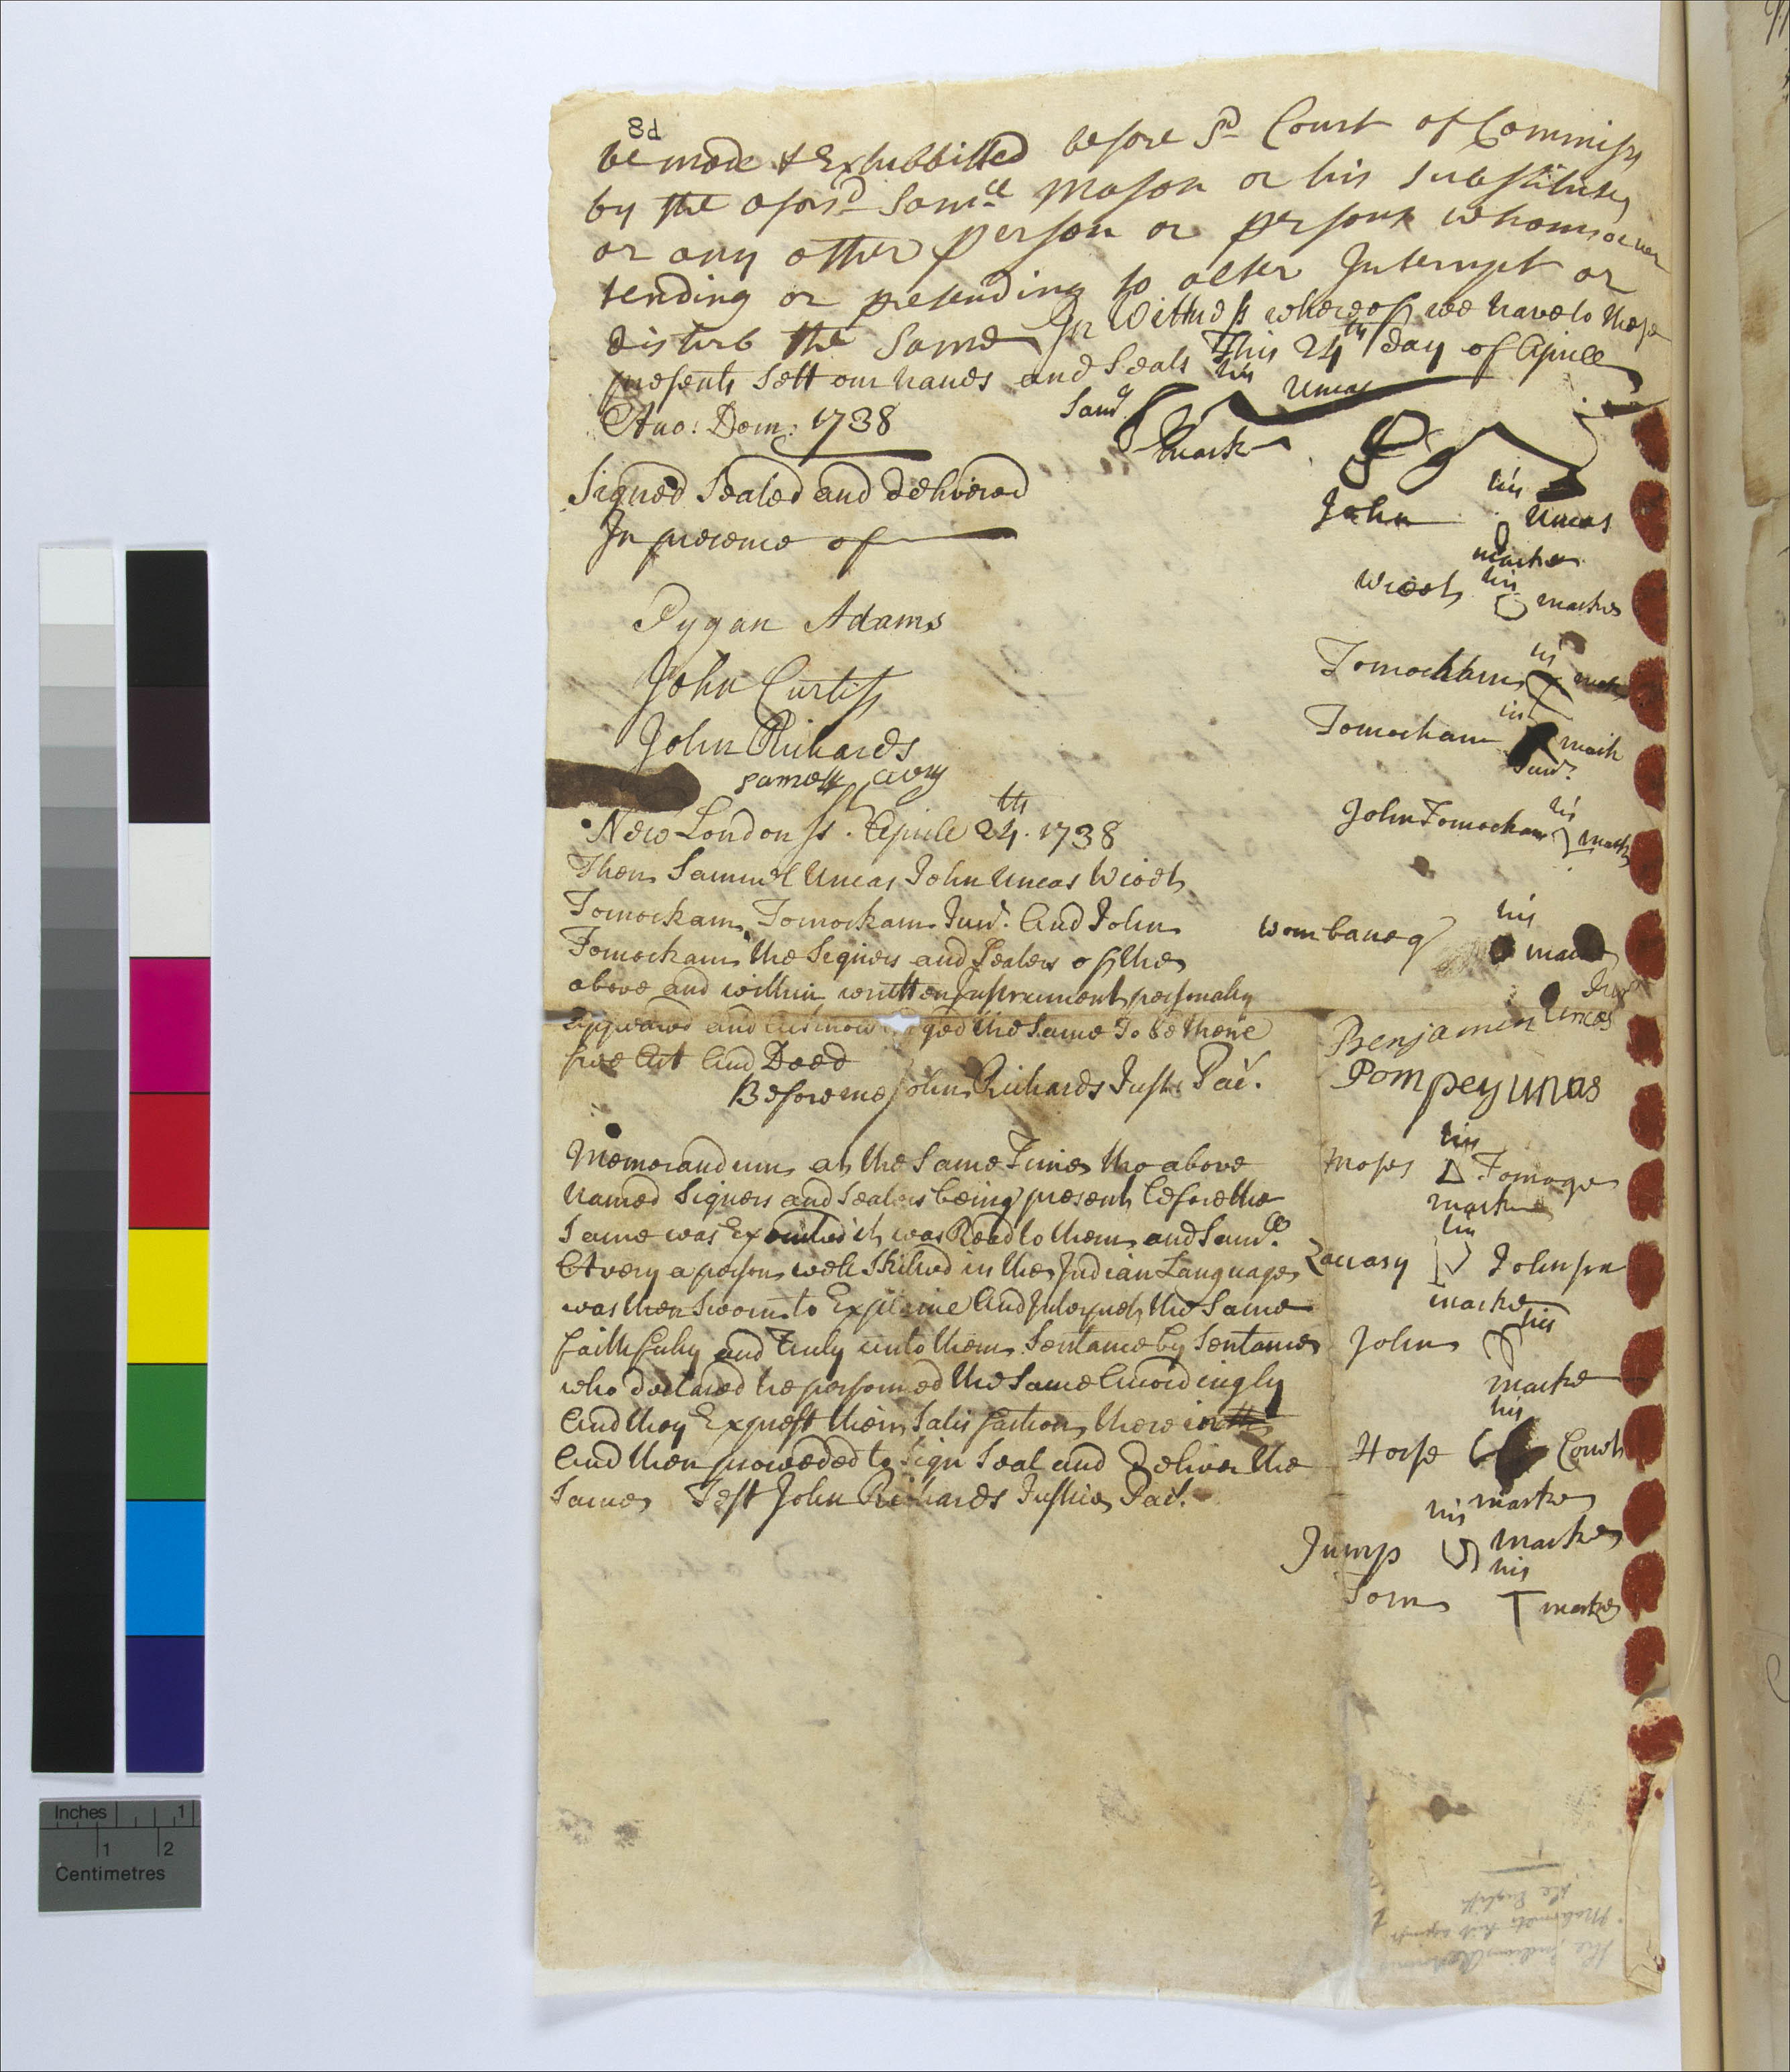 8d
be made & Exhibbitted before Sd Court of Commiss
by the afors:d Sam:ll Mason or his Substitutes
or any other person or persons whomsoever
tending or pretending to alter Interrupt or
disturb the Same In Wittness whereof we have to these
presents Sett our hands and Seals This 24th day of Aprill
Ano: Dom: 1738
Sam:ll his Uncas
mark
Signed Sealed and delivered
In presence of
John his Uncas
marke
Wieot his marke
Pygan Adams
John Curtiss
John Richards
Samell Avery
Tomockham his mark
Tomockam his mark
Junr.
John Tomockam his mark
New London Ss. Aprile 24th. 1738
Then Samuel Uncas John Uncas Wioet
Tomockam, Tomockam Junr. And John
Tomockam the Signers and Sealers of the
above and within written Instrument personally
appeared and acknow ged the Same To be there
free Act And Deed
Before me John Richards Just: Pac.
wombaneq his marke
Benjamin Uncas Junr
Pompey unas
Memorandum at the Same Time the above
Named Signers and Sealers being present before the
Same was Executed it was Read to them and Samll.
Avery a person well Skilled in the Indian Language
was then Sworn to Explaine And Interpret the Same
faithfully and Truly unto them Sentance by Sentance
who declared he performed the Same Accordingly
And they Exprest their Satisfaction there in
And then proceeded to Sign Seal and Deliver the
Same Test John Richards Justice Pac.
Moses his Tomoge
marke
Zacrary his Johnson
marke
John his
marke
Horse his Couch
marke
Jump his marke
Tom his T marke
the English
Inches 1
1 2
Centimetres